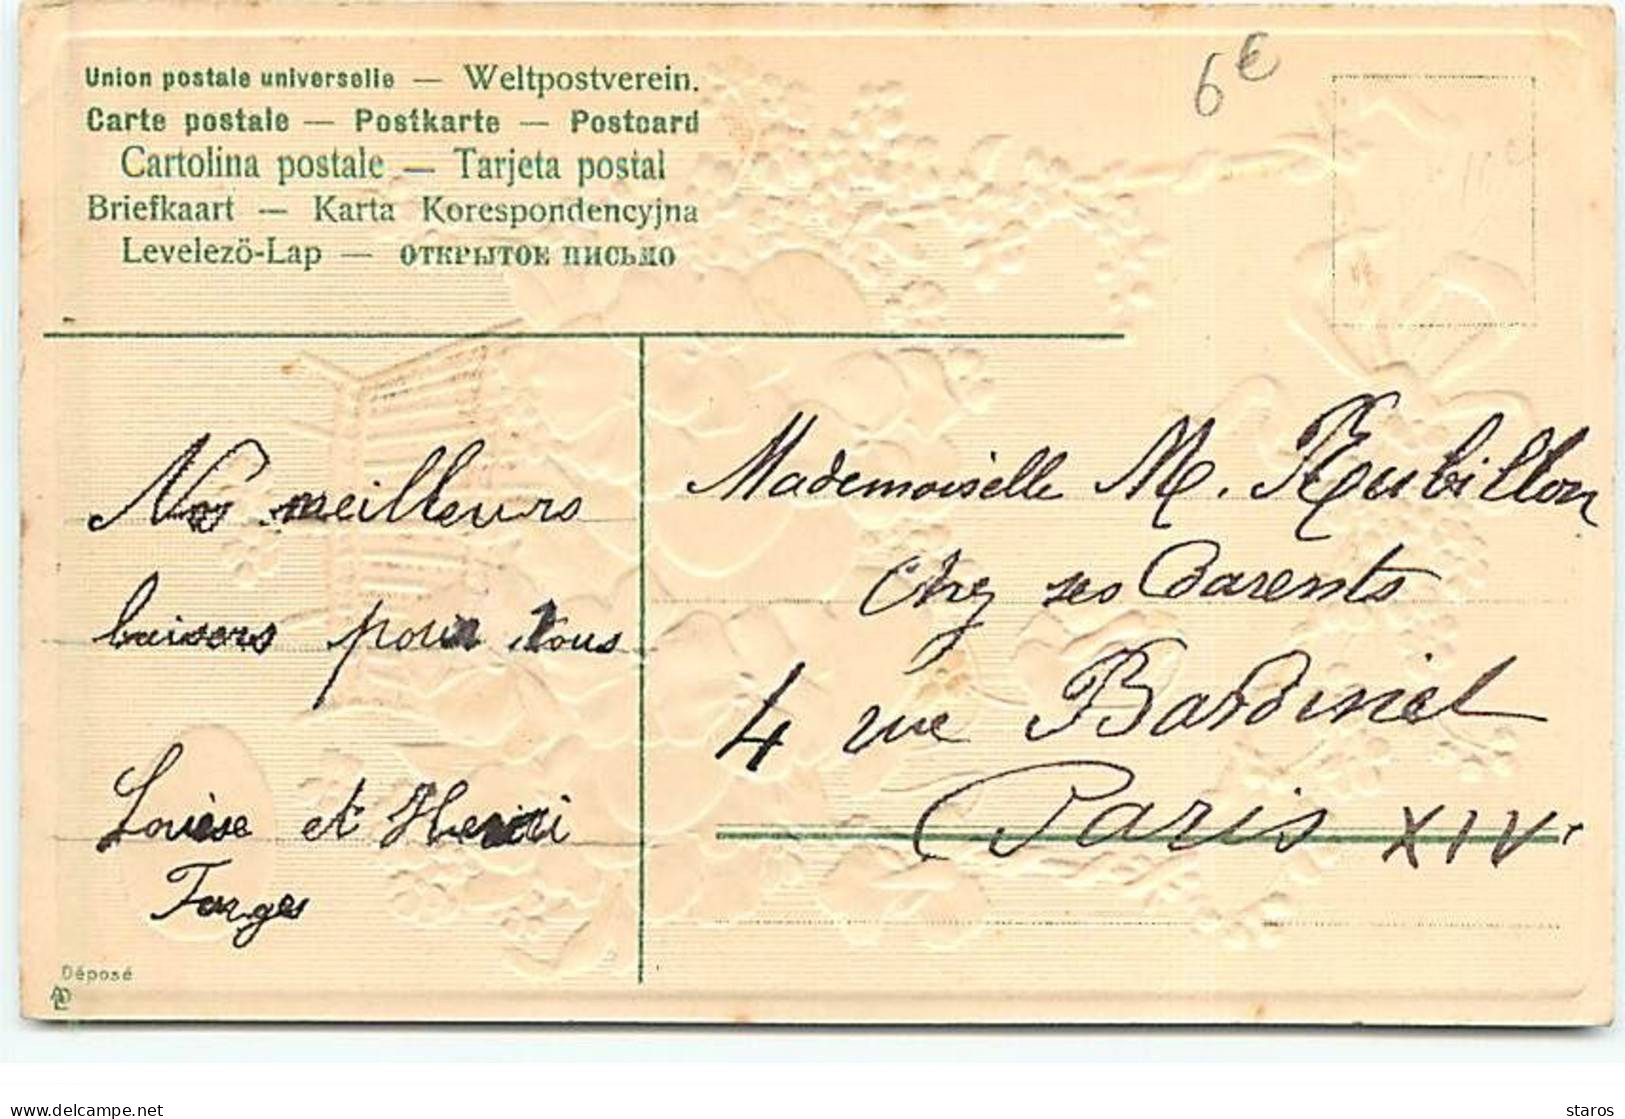 Union postale universelle — Weltpostverein.
Carte postale — Postkarte — Postcard
Cartolina postale — Tarjeta postal
Briefkaart — Karta Korespondencyjna
Levelezö-Lap — ОТКРЫТОЕ ПИСЬМО
6€
Nos meilleurs
baisers pour tous
Louise et Henri
Forges
Mademoiselle M. Rubillon
Chez ses Parents
4 rue Bardinet
Paris XIVe
Déposé
delcampe.net
staros